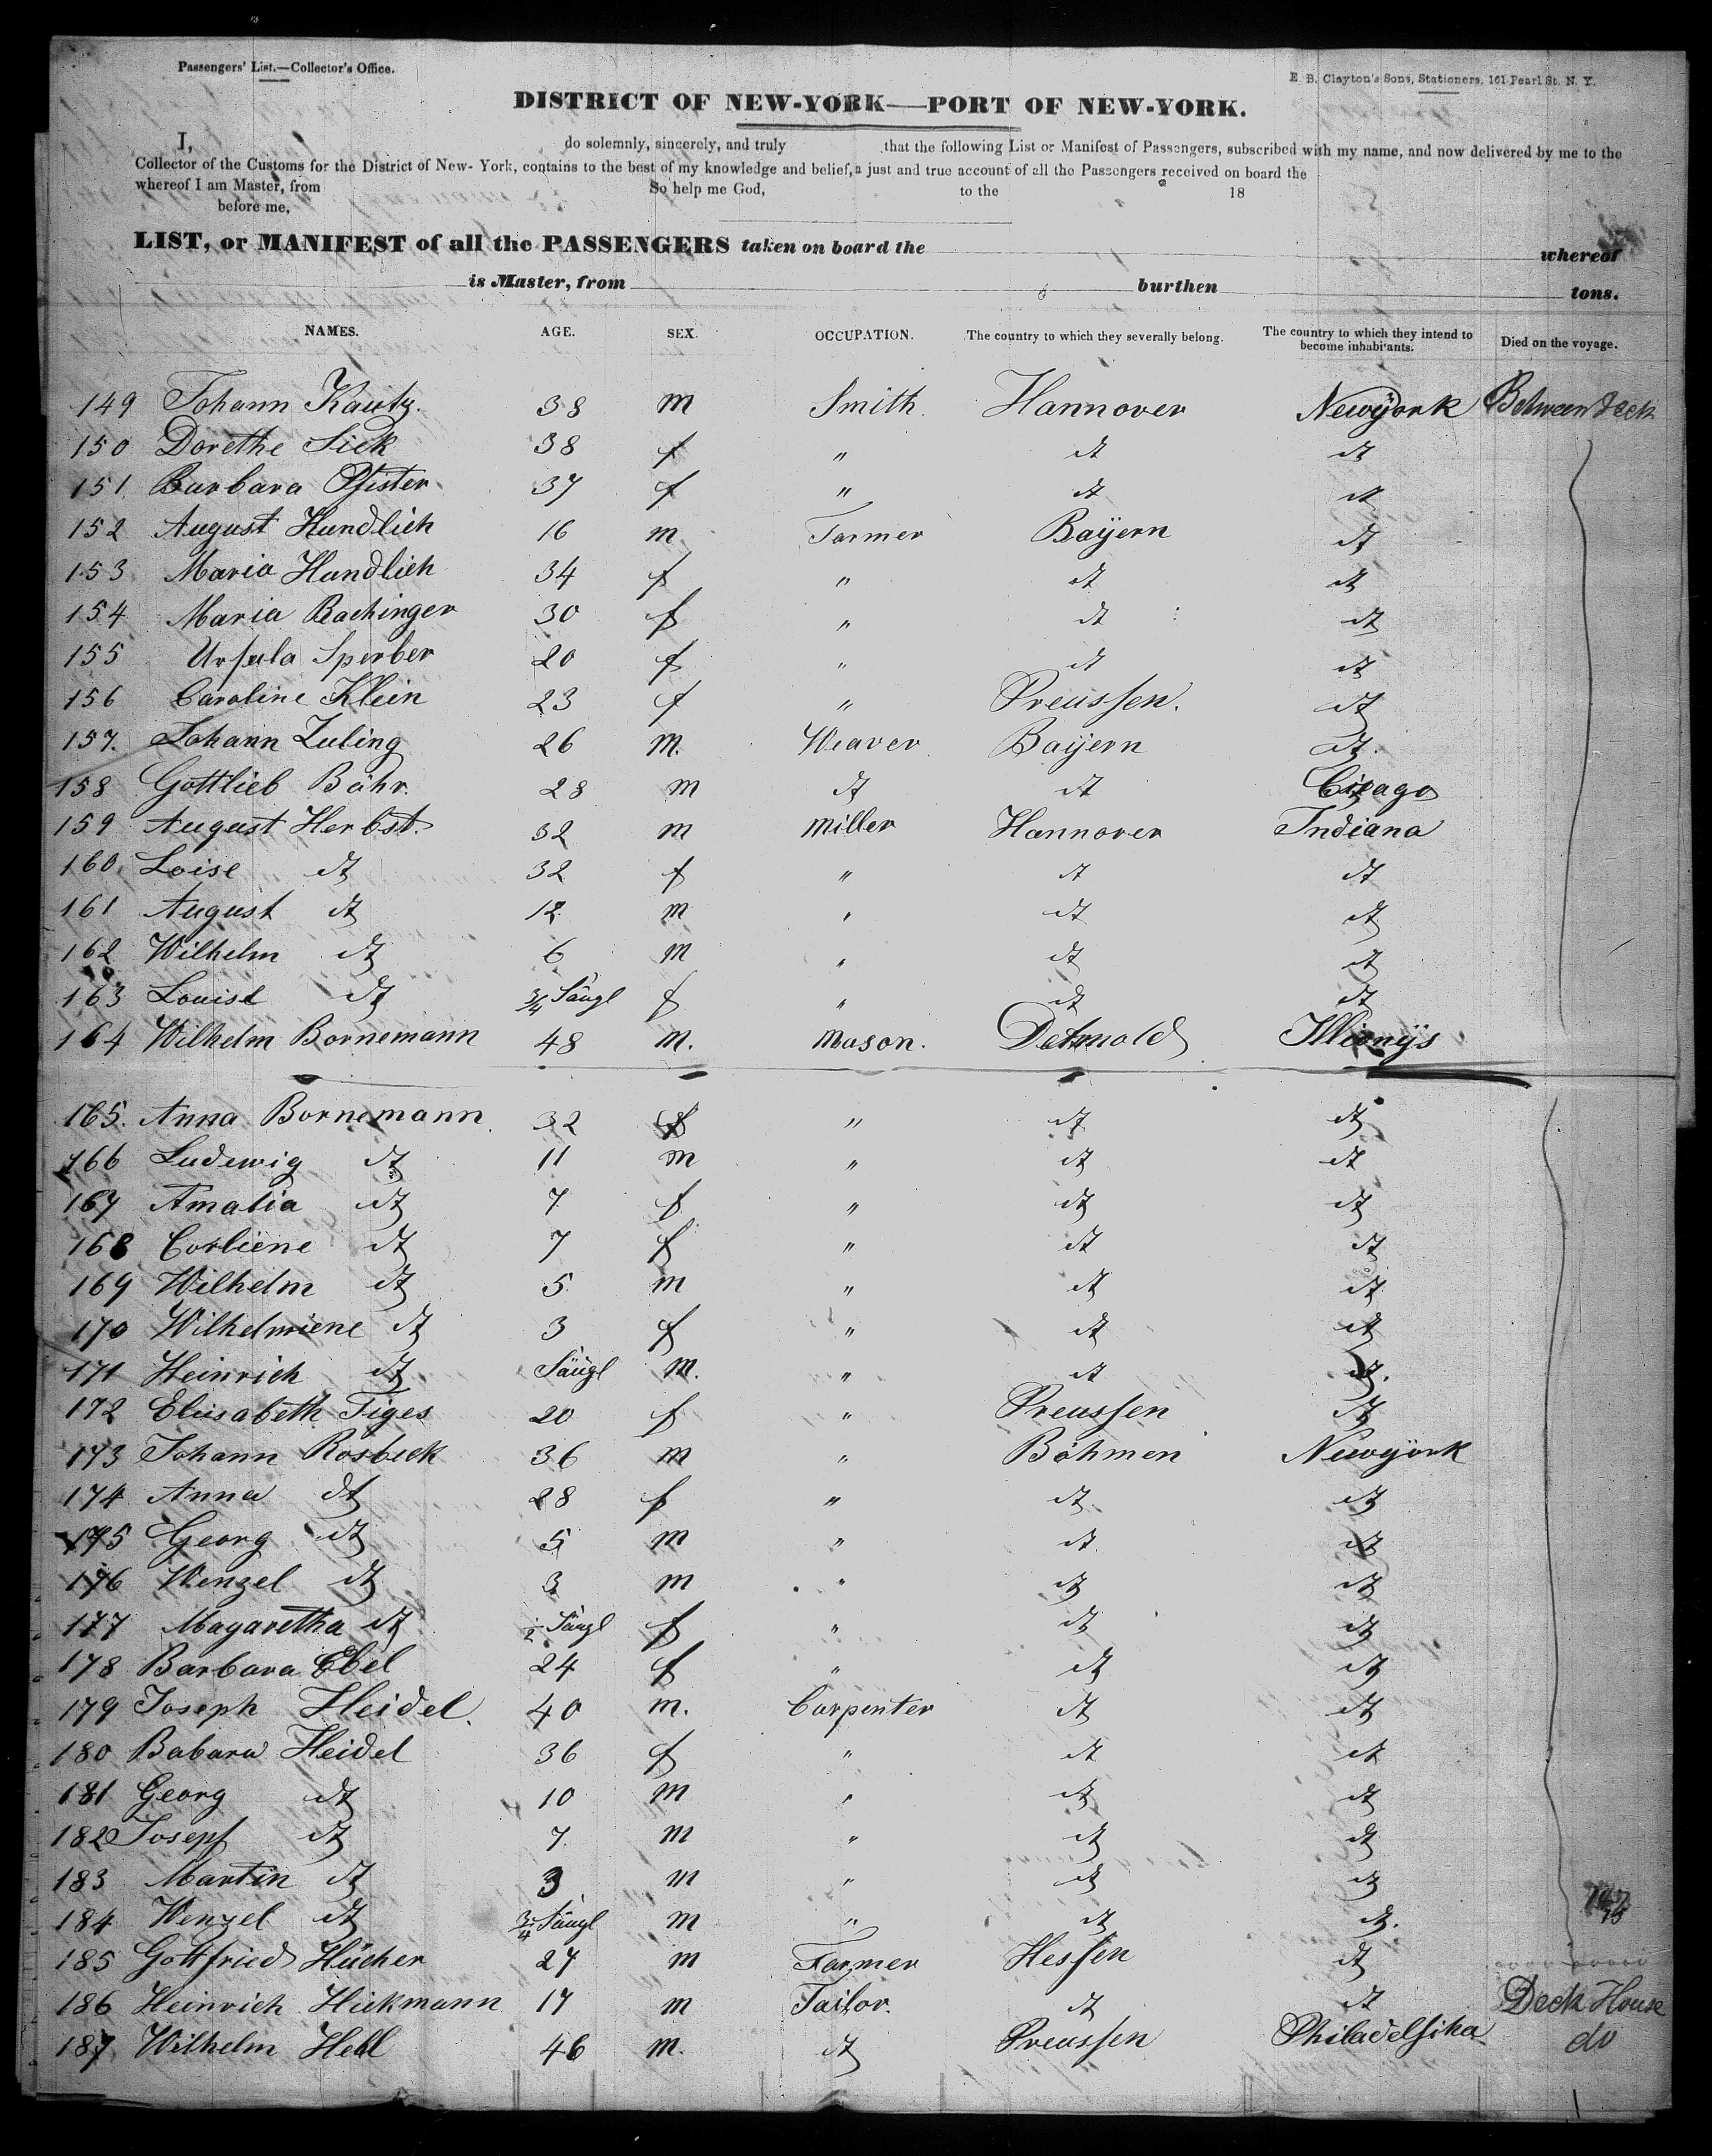 Passengers' List.—Collector's Office.
E. B. Clayton's Sons, Stationers, 161 Pearl St. N. Y.
DISTRICT OF NEW-YORK—PORT OF NEW-YORK.
I, do solemnly, sincerely, and truly that the following List or Manifest of Passengers, subscribed with my name, and now delivered by me to the
Collector of the Customs for the District of New-York, contains to the best of my knowledge and belief, a just and true account of all the Passengers received on board the
whereof I am Master, from So help me God, to the 18
before me,
LIST, or MANIFEST of all the PASSENGERS taken on board the whereof
is Master, from burthen tons.
NAMES. AGE. SEX. OCCUPATION. The country to which they severally belong. The country to which they intend to become inhabitants. Died on the voyage.
149 Johann Kautz. 38 m Smith. Hannover Newyork Between Deck
150 Dorethe Sick 38 f " dt dt
151 Barbara Pfister 37 f " dt dt
152 August Hundlich 16 m Farmer Bayern dt
153 Maria Hundlich 34 f " dt dt
154 Maria Bachinger 30 f " dt dt
155 Ursula Sperber 20 f " dt dt
156 Caroline Klein 23 f " Preussen. dt
157. Johann Zuling 26 m. Weaver Bayern dt.
158 Gottlieb Bähr. 28 m dt dt Cigago
159 August Herbst. 32 m Miller Hannover Indiana
160 Loise dt 32 f " dt dt
161 August dt 12 m " dt dt
162 Wilhelm dt 6 m " dt dt
163 Louise dt 3/4 Säugl f " dt dt
164 Wilhelm Bornemann 48 m. Mason. Detmold
165. Anna Bornemann 32 f " dt dt
166 Ludewig dt 11 m " dt dt
167 Amalia dt 7 f " dt dt
168 Corliene dt 7 f " dt dt
169 Wilhelm dt 5 m " dt dt
170 Wilhelmiene dt 3 f " dt dt
171 Heinrich dt Säugl m. " dt dt.
172 Eliesabeth Tiges 20 f " Preussen dt
173 Johann Rosbeck 36 m " Böhmen Newyork
174 Anna dt 28 f " dt dt
175 Georg dt 5 m " dt dt
176 Wenzel dt 3 m " dt dt
177 Magaretha dt 1/2 Säugl f " dt dt
178 Barbara Ebel 24 f " dt dt
179 Joseph Heidel. 40 m. Carpenter dt dt
180 Babara Heidel 36 f " dt dt
181 Georg dt 10 m " dt dt
182 Josepf dt 7. m " dt dt
183 Martin dt 3 m " dt dt
184 Wenzel dt 3/4 Säugl m " dt dt.
185 Gottfried Hücher 27 m Farmer Hessen dt
186 Heinrich Hickmann 17 m Tailor. dt dt Deck House
187 Wilhelm Hell 46 m. dt Preussen Philadelfika do